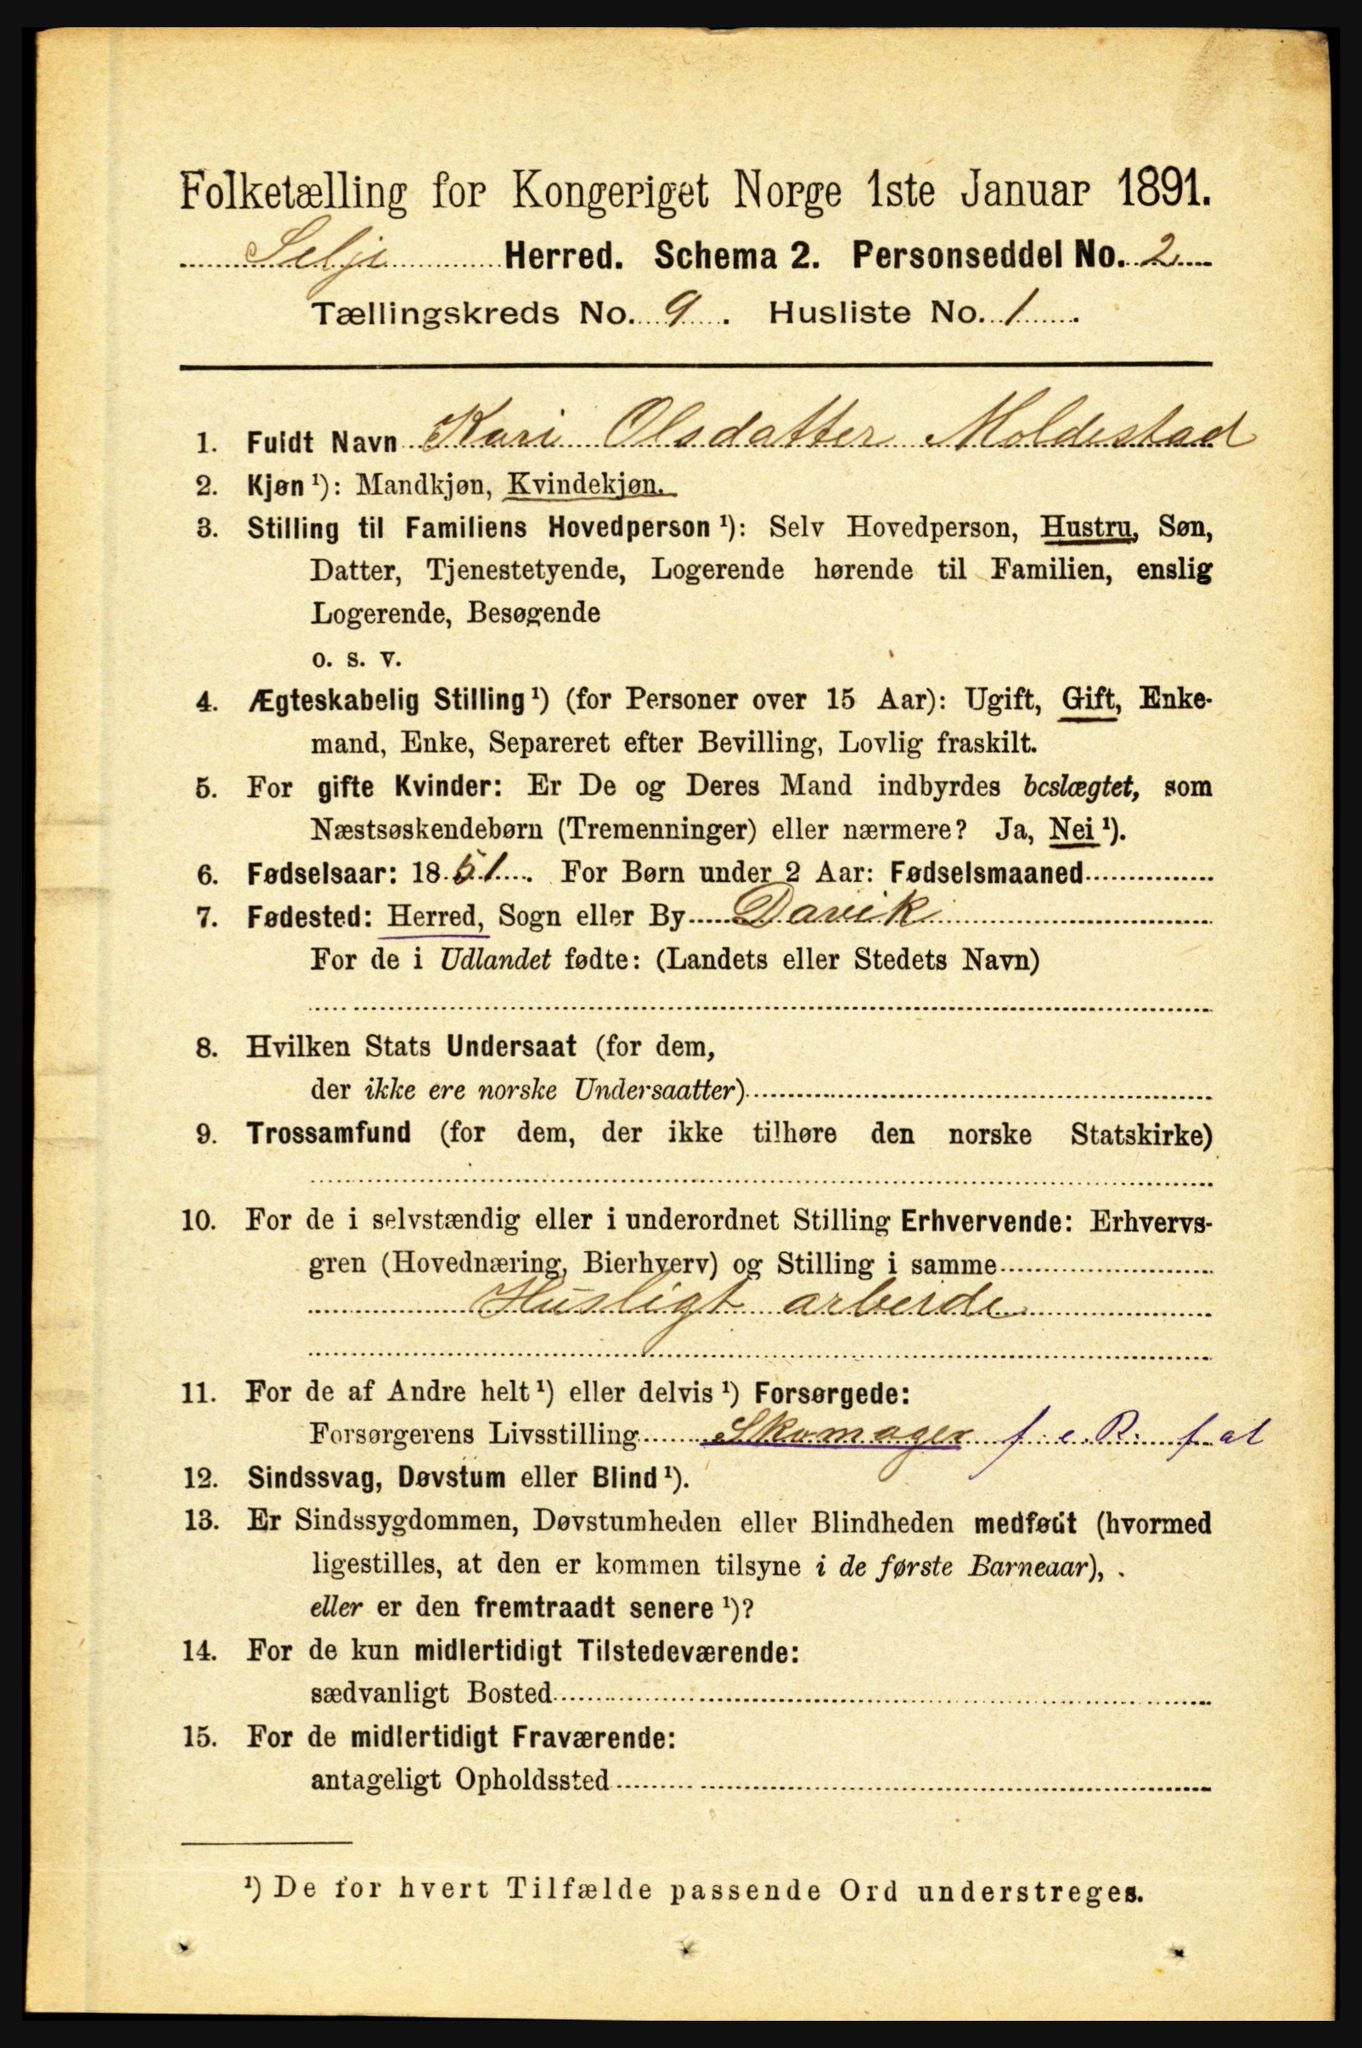 Folketælling for Kongeriget Norge 1ste Januar 1891.
Selje Herred. Schema 2. Personseddel No. 2
Tællingskreds No. 9. Husliste No. 1.
1. Fuldt Navn Kari Olsdatter Moldestad
2. Kjøn ¹): Mandkjøn, Kvindekjøn.
3. Stilling til Familiens Hovedperson ¹): Selv Hovedperson, Hustru, Søn,
Datter, Tjenestetyende, Logerende hørende til Familien, enslig
Logerende, Besøgende
o. s. v.
4. Ægteskabelig Stilling ¹) (for Personer over 15 Aar): Ugift, Gift, Enke-
mand, Enke, Separeret efter Bevilling, Lovlig fraskilt.
5. For gifte Kvinder: Er De og Deres Mand indbyrdes beslægtet, som
Næstsøskendebørn (Tremenninger) eller nærmere? Ja, Nei ¹).
6. Fødselsaar: 1851. For Børn under 2 Aar: Fødselsmaaned
7. Fødested: Herred, Sogn eller By Davik
For de i Udlandet fødte: (Landets eller Stedets Navn)
8. Hvilken Stats Undersaat (for dem,
der ikke ere norske Undersaatter)
9. Trossamfund (for dem, der ikke tilhøre den norske Statskirke)
10. For de i selvstændig eller i underordnet Stilling Erhvervende: Erhvervs-
gren (Hovednæring, Bierhverv) og Stilling i samme
Husligt arbeide
11. For de af Andre helt ¹) eller delvis ¹) Forsørgede:
Forsørgerens Livsstilling Skomager f. e. R. f at
12. Sindssvag, Døvstum eller Blind ¹).
13. Er Sindssygdommen, Døvstumheden eller Blindheden medfødt (hvormed
ligestilles, at den er kommen tilsyne i de første Barneaar),
eller er den fremtraadt senere ¹)?
14. For de kun midlertidigt Tilstedeværende:
sædvanligt Bosted
15. For de midlertidigt Fraværende:
antageligt Opholdssted
¹) De for hvert Tilfælde passende Ord understreges.